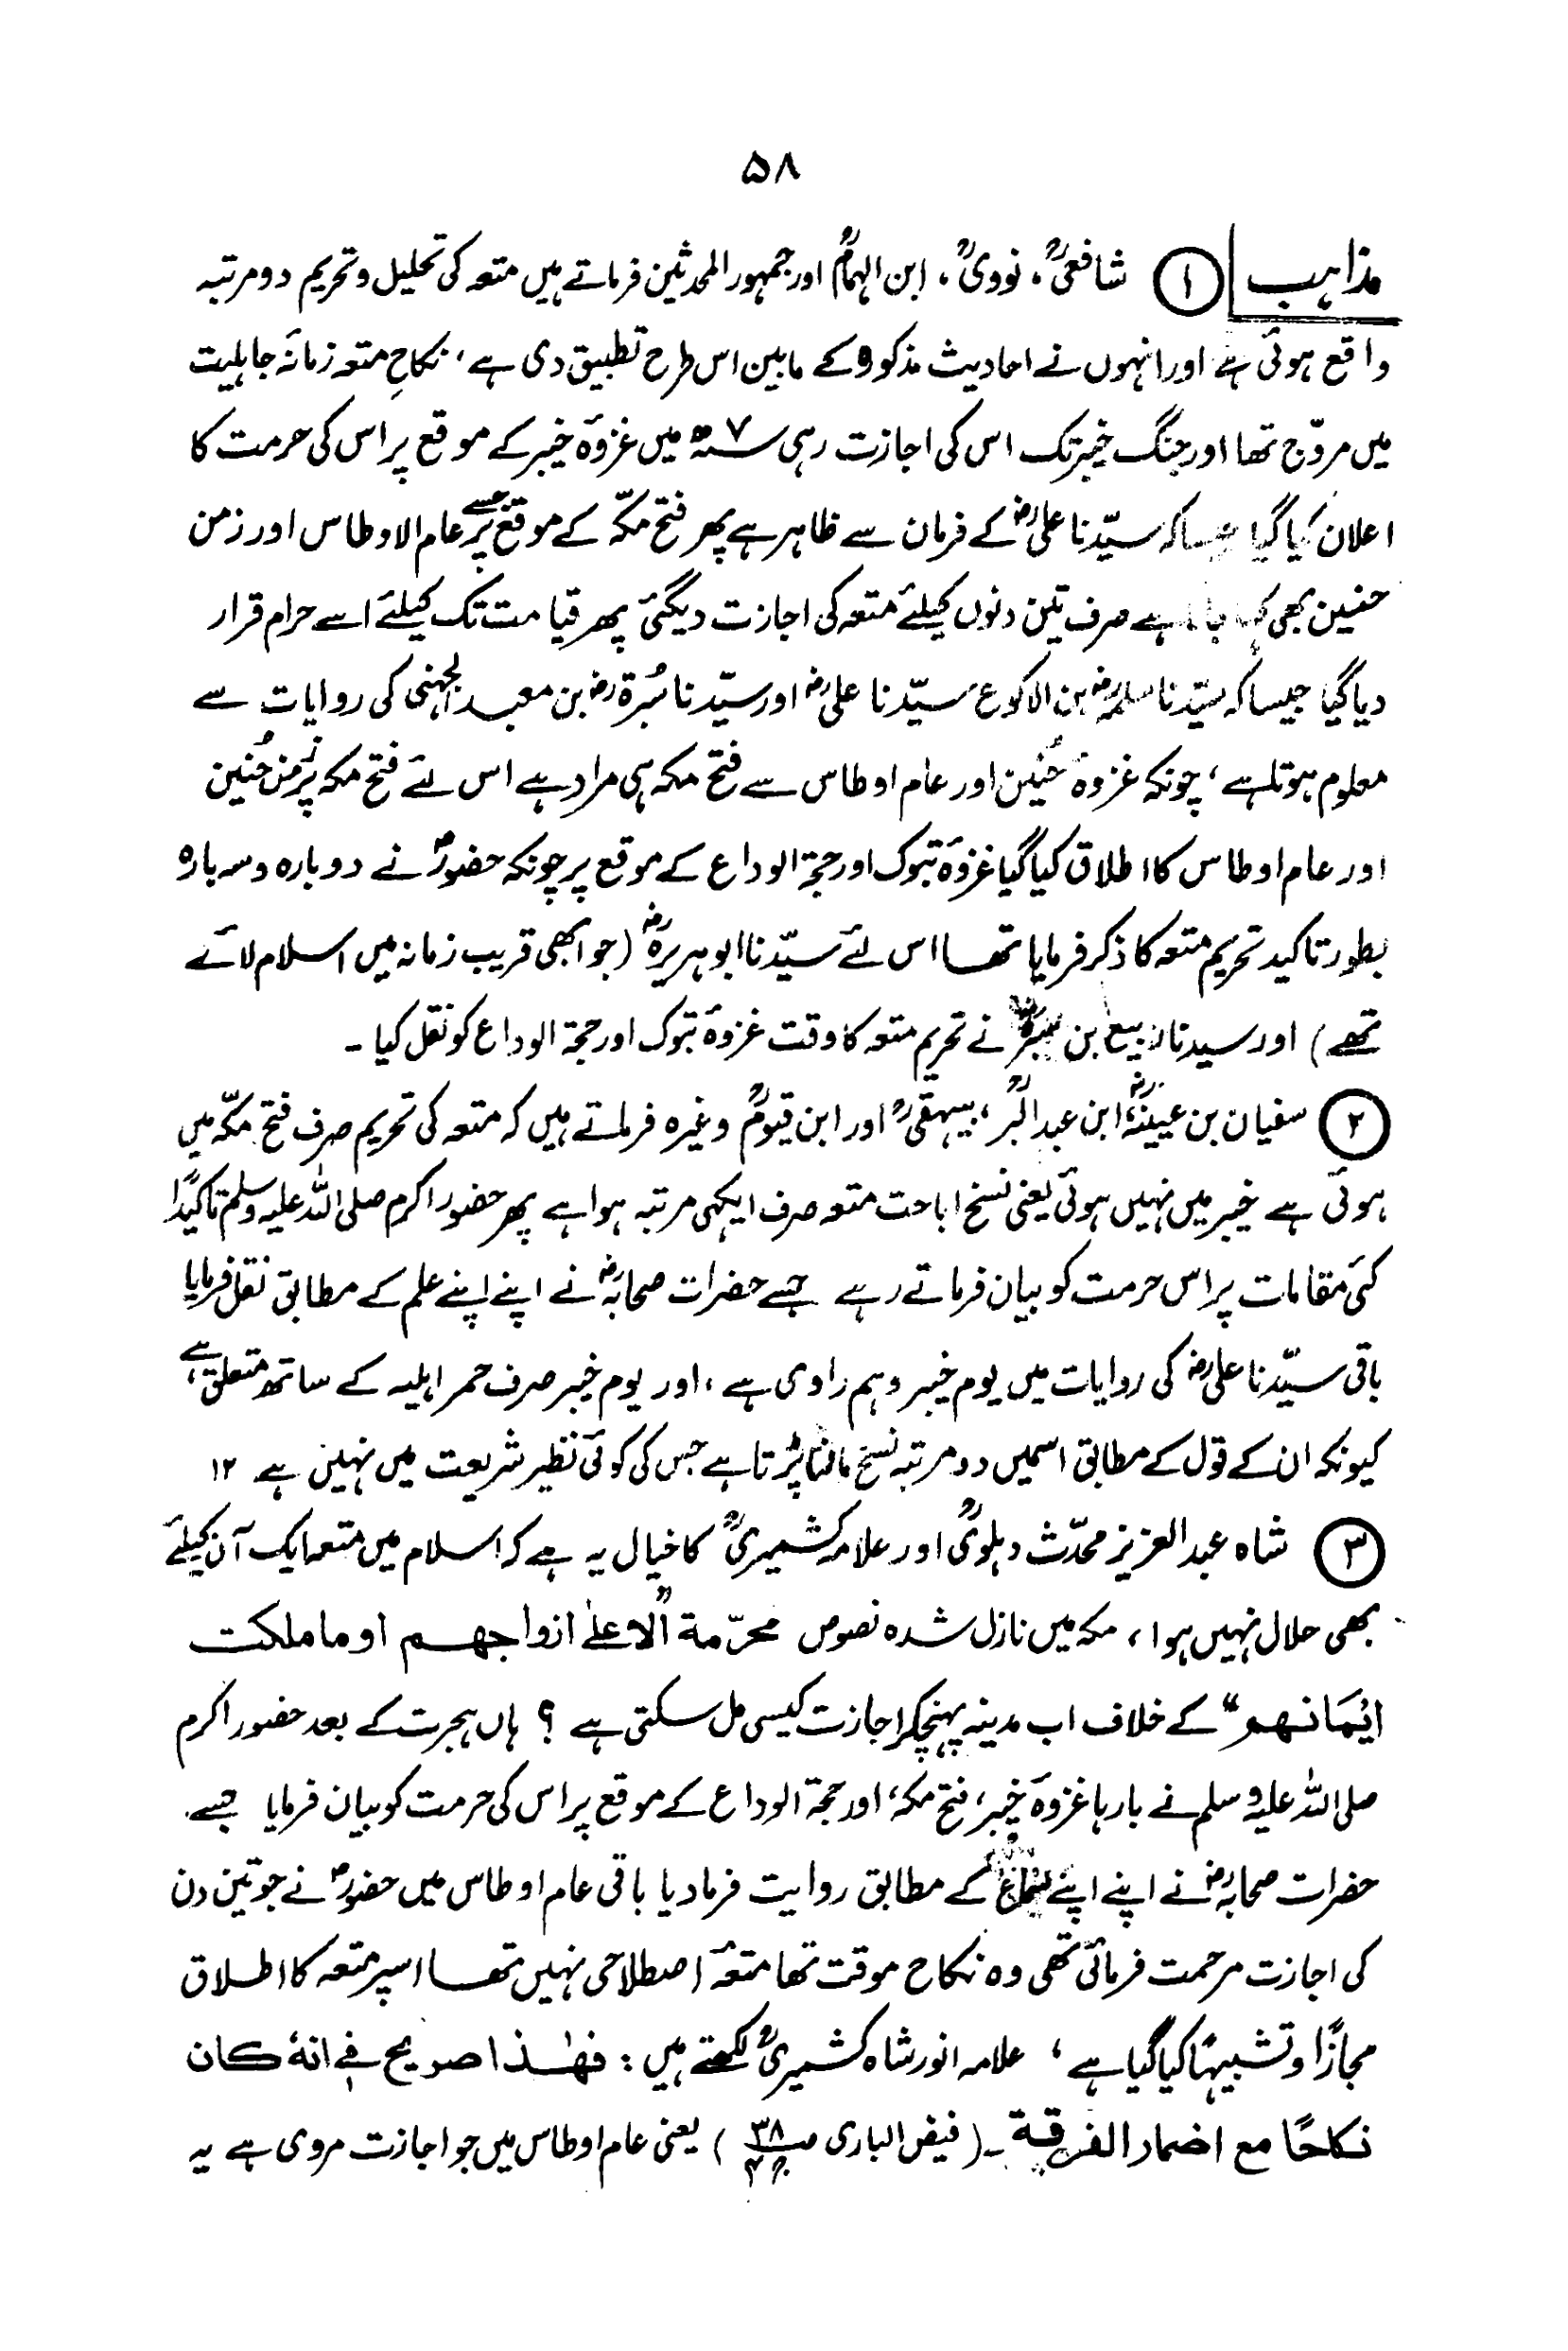 ۵۸
مذاہب ① شافعیؒ، نوویؒ، ابن الہمامؒ اور جمہور المحدثین فرماتے ہیں متعہ کی تحلیل و تحریم دو مرتبہ
واقع ہوئی ہے اور انہوں نے احادیث مذکورہ کے مابین اس طرح تطبیق دی ہے، نکاحِ متعہ زمانۂ جاہلیت
میں مروّج تھا اور جنگ خیبر تک اس کی اجازت رہی ۷ھ میں غزوۂ خیبر کے موقع پر اس کی حرمت کا
اعلان کیا گیا جیسا کہ سیّدنا علیؓ کے فرمان سے ظاہر ہے پھر فتح مکّہ کے موقع پر جسے عام الاوطاس اور زمن
حنین بھی کہا جاتا ہے صرف تین دنوں کیلئے متعہ کی اجازت دیگئی پھر قیامت تک کیلئے اسے حرام قرار
دیا گیا جیسا کہ سیّدنا سلمہؓ بن الاکوع سیّدنا علیؓ اور سیّدنا سُبرةؓ بن معبد الجہنی کی روایات سے
معلوم ہوتا ہے، چونکہ غزوۂ حُنین اور عام اوطاس سے فتح مکہ ہی مراد ہے اس لئے فتح مکہ پر زمن حُنین
اور عام اوطاس کا اطلاق کیا گیا غزوۂ تبوک اور حجۃ الوداع کے موقع پر چونکہ حضورؐ نے دوبارہ و سہ بارہ
بطور تاکید تحریم متعہ کا ذکر فرمایا تھا اس لئے سیّدنا ابوہریرہؓ (جو ابھی قریب زمانہ میں اسلام لائے
تھے) اور سیدنا ربیع بن سبرہؓ نے تحریم متعہ کا وقت غزوۂ تبوک اور حجۃ الوداع کو نقل کیا ۔
② سفیان بن عیینہؒ ابن عبد البرؒ، بیہقیؒ اور ابن قیومؒ وغیرہ فرماتے ہیں کہ متعہ کی تحریم صرف فتح مکّہ میں
ہوئی ہے خیبر میں نہیں ہوئی یعنی نسخ اباحت متعہ صرف ایکہی مرتبہ ہوا ہے پھر حضور اکرم صلی اللہ علیہ وسلم تاکیدًا
کئی مقامات پر اس حرمت کو بیان فرماتے رہے جسے حضرات صحابہؓ نے اپنے اپنے علم کے مطابق نقل فرمایا
باقی سیّدنا علیؓ کی روایات میں یوم خیبر وہم راوی ہے، اور یوم خیبر صرف حمر اہلیہ کے ساتھ متعلق ہے،
کیونکہ ان کے قول کے مطابق اسمیں دو مرتبہ نسخ ماننا پڑتا ہے جس کی کوئی نظیر شریعت میں نہیں ہے ۱۲
③ شاہ عبد العزیز محدّث دہلویؒ اور علامہ کشمیریؒ کا خیال یہ ہے کہ اسلام میں متعہ ایک آن کیلئے
بھی حلال نہیں ہوا، مکہ میں نازل شدہ نصوص محرّمة "الا علیٰ ازواجهم او ما ملكت
ايمانهم" کے خلاف اب مدینہ پہنچکر اجازت کیسی مل سکتی ہے ؟ ہاں ہجرت کے بعد حضور اکرم
صلی اللہ علیہ وسلم نے بارہا غزوۂ خیبر، فتح مکہ، اور حجۃ الوداع کے موقع پر اس کی حرمت کو بیان فرمایا جسے
حضرات صحابہؓ نے اپنے اپنے سماع کے مطابق روایت فرمادیا باقی عام اوطاس میں حضورؐ نے جو تین دن
کی اجازت مرحمت فرمائی تھی وہ نکاح موقت تھا متعۂ اصطلاحی نہیں تھا اسپر متعہ کا اطلاق
مجازًا و تشبیہًا کیا گیا ہے، علامہ انور شاہ کشمیریؒ لکھتے ہیں : فهٰذا صريح فى انهٗ كان
نكاحًا مع اضمار الفرقة ۔ (فیض الباری ص۱۳۸ ج۴) یعنی عام اوطاس میں جو اجازت مروی ہے یہ